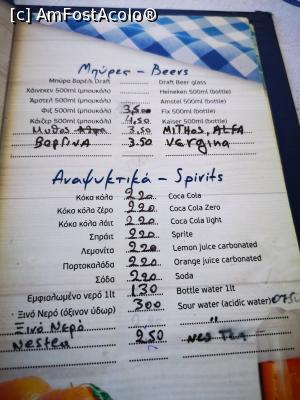 [c] AmFostAcolo®
Μπύρες – Beers
Μπύρα Βαρέλι Draft Draft Beer glass
Χάινεκεν 500ml (μπουκάλι) Heineken 500ml (bottle)
Άμστελ 500ml (μπουκάλι) Amstel 500ml (bottle)
Φιξ 500ml (μπουκάλι) 3,50 Fix 500ml (bottle)
Κάιζερ 500ml (μπουκάλι) 4,50 Kaiser 500ml (bottle)
Μυθος Αλφα 3,50 MITHOS, ALFA
Βαργινα 3.50 Vergina
Αναψυκτικά – Spirits
Κόκα κόλα 220 Coca Cola
Κόκα κόλα ζέρο 220 Coca Cola Zero
Κόκα κόλα λάιτ 220 Coca Cola light
Σπράιτ 220 Sprite
Λεμονίτα 220 Lemon juice carbonated
Πορτοκαλάδα 220 Orange juice carbonated
Σόδα 220 Soda
Εμφιαλωμένο νερό 1lt 130 Bottle water 1lt
Ξινό Νερό (όξινον ύδωρ) 300 Sour water (acidic water)
Ξινό Νερό "
Nestea 250